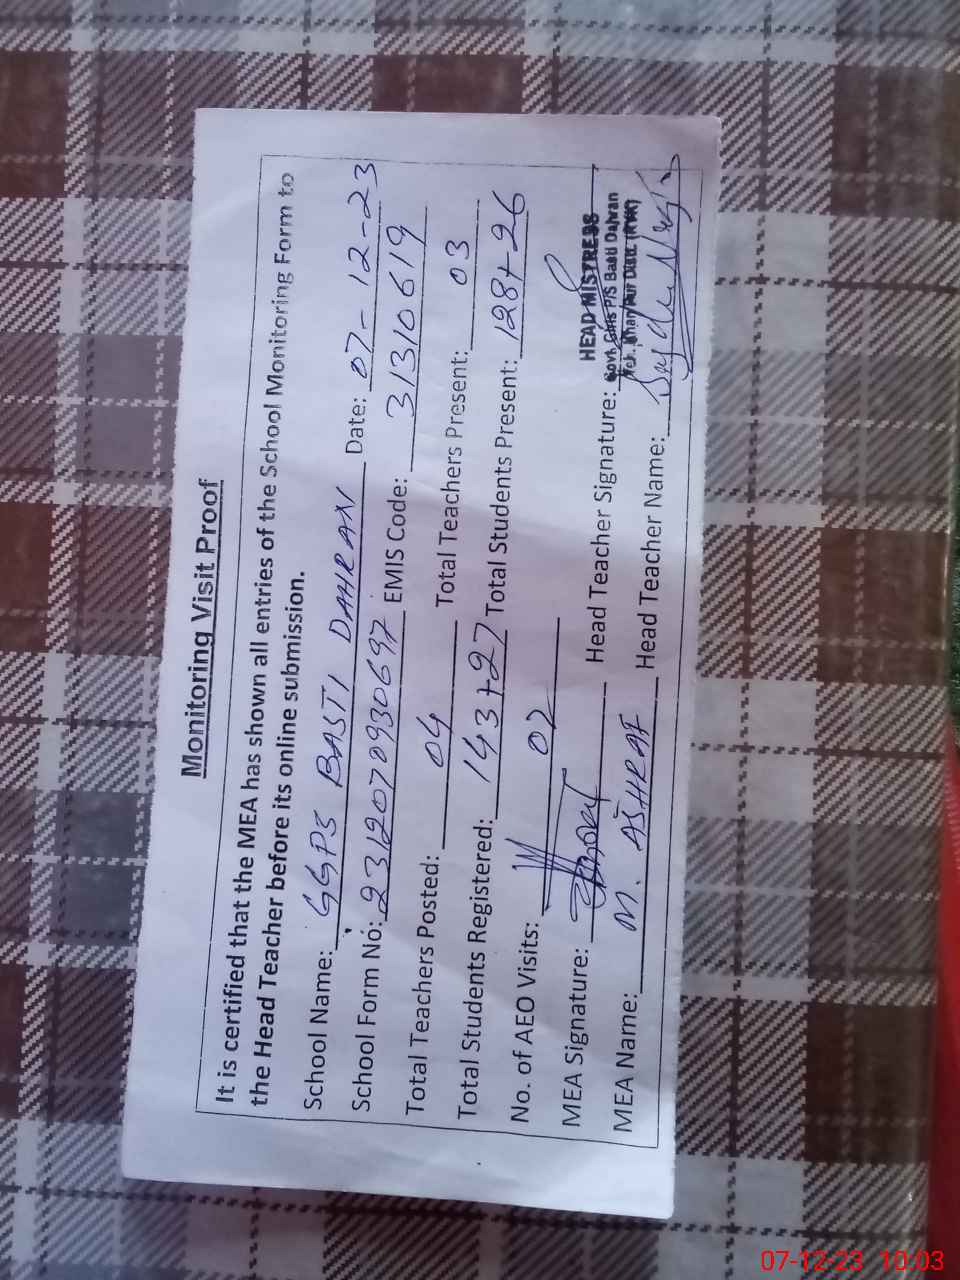 Monitoring Visit Proof
It is certified that the MEA has shown all entries of the School Monitoring Form to
the Head Teacher before its online submission.
School Name: GGPS BASTI DAHRAN Date: 07-12-23
School Form No: 231207093069 EMIS Code: 31310619
Total Teachers Posted: 04 Total Teachers Present: 03
Total Students Registered: 143+27 Total Students Present: 128+26
No. of AEO Visits: 02
HEAD MISTRESS
MEA Signature: Head Teacher Signature: Govt. Girls P/S Basti Dahran
Teh. Khan Pur Distt. (RYK)
MEA Name: M. ASHRAF Head Teacher Name:
07-12-23 10:03